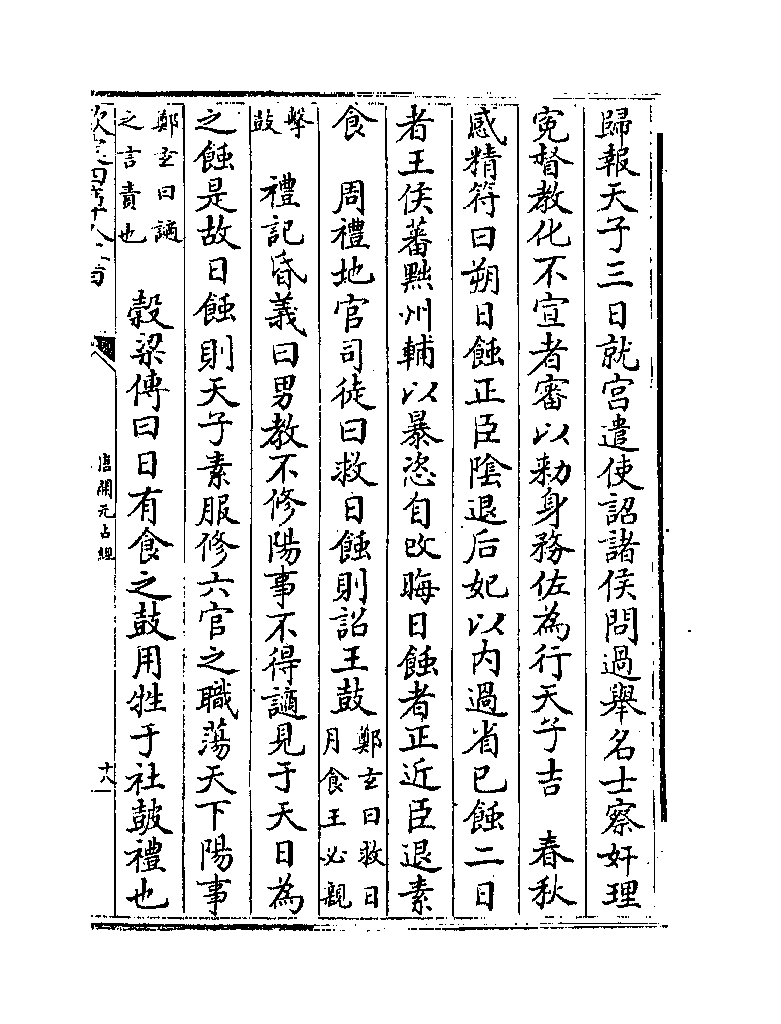 歸報天子三日就宫遣使詔諸侯問過舉名士察奸理
寃督教化不宣者審以勅身務佐為行天子吉　春秋
感精符曰朔日蝕正臣陰退后妃以内過省已蝕二日
者王侯蕃黜州輔以暴恣自改晦日蝕者正近臣退素
食　周禮地官司徒曰救日蝕則詔王鼓鄭玄曰救日
月食王必親
擊
鼓　禮記昏義曰男教不修陽事不得謫見于天日為
之蝕是故日蝕則天子素服修六官之職蕩天下陽事
鄭玄曰謫
之言責也　穀梁傳曰日有食之鼓用牲于社鼓禮也
唐開元占經
十八